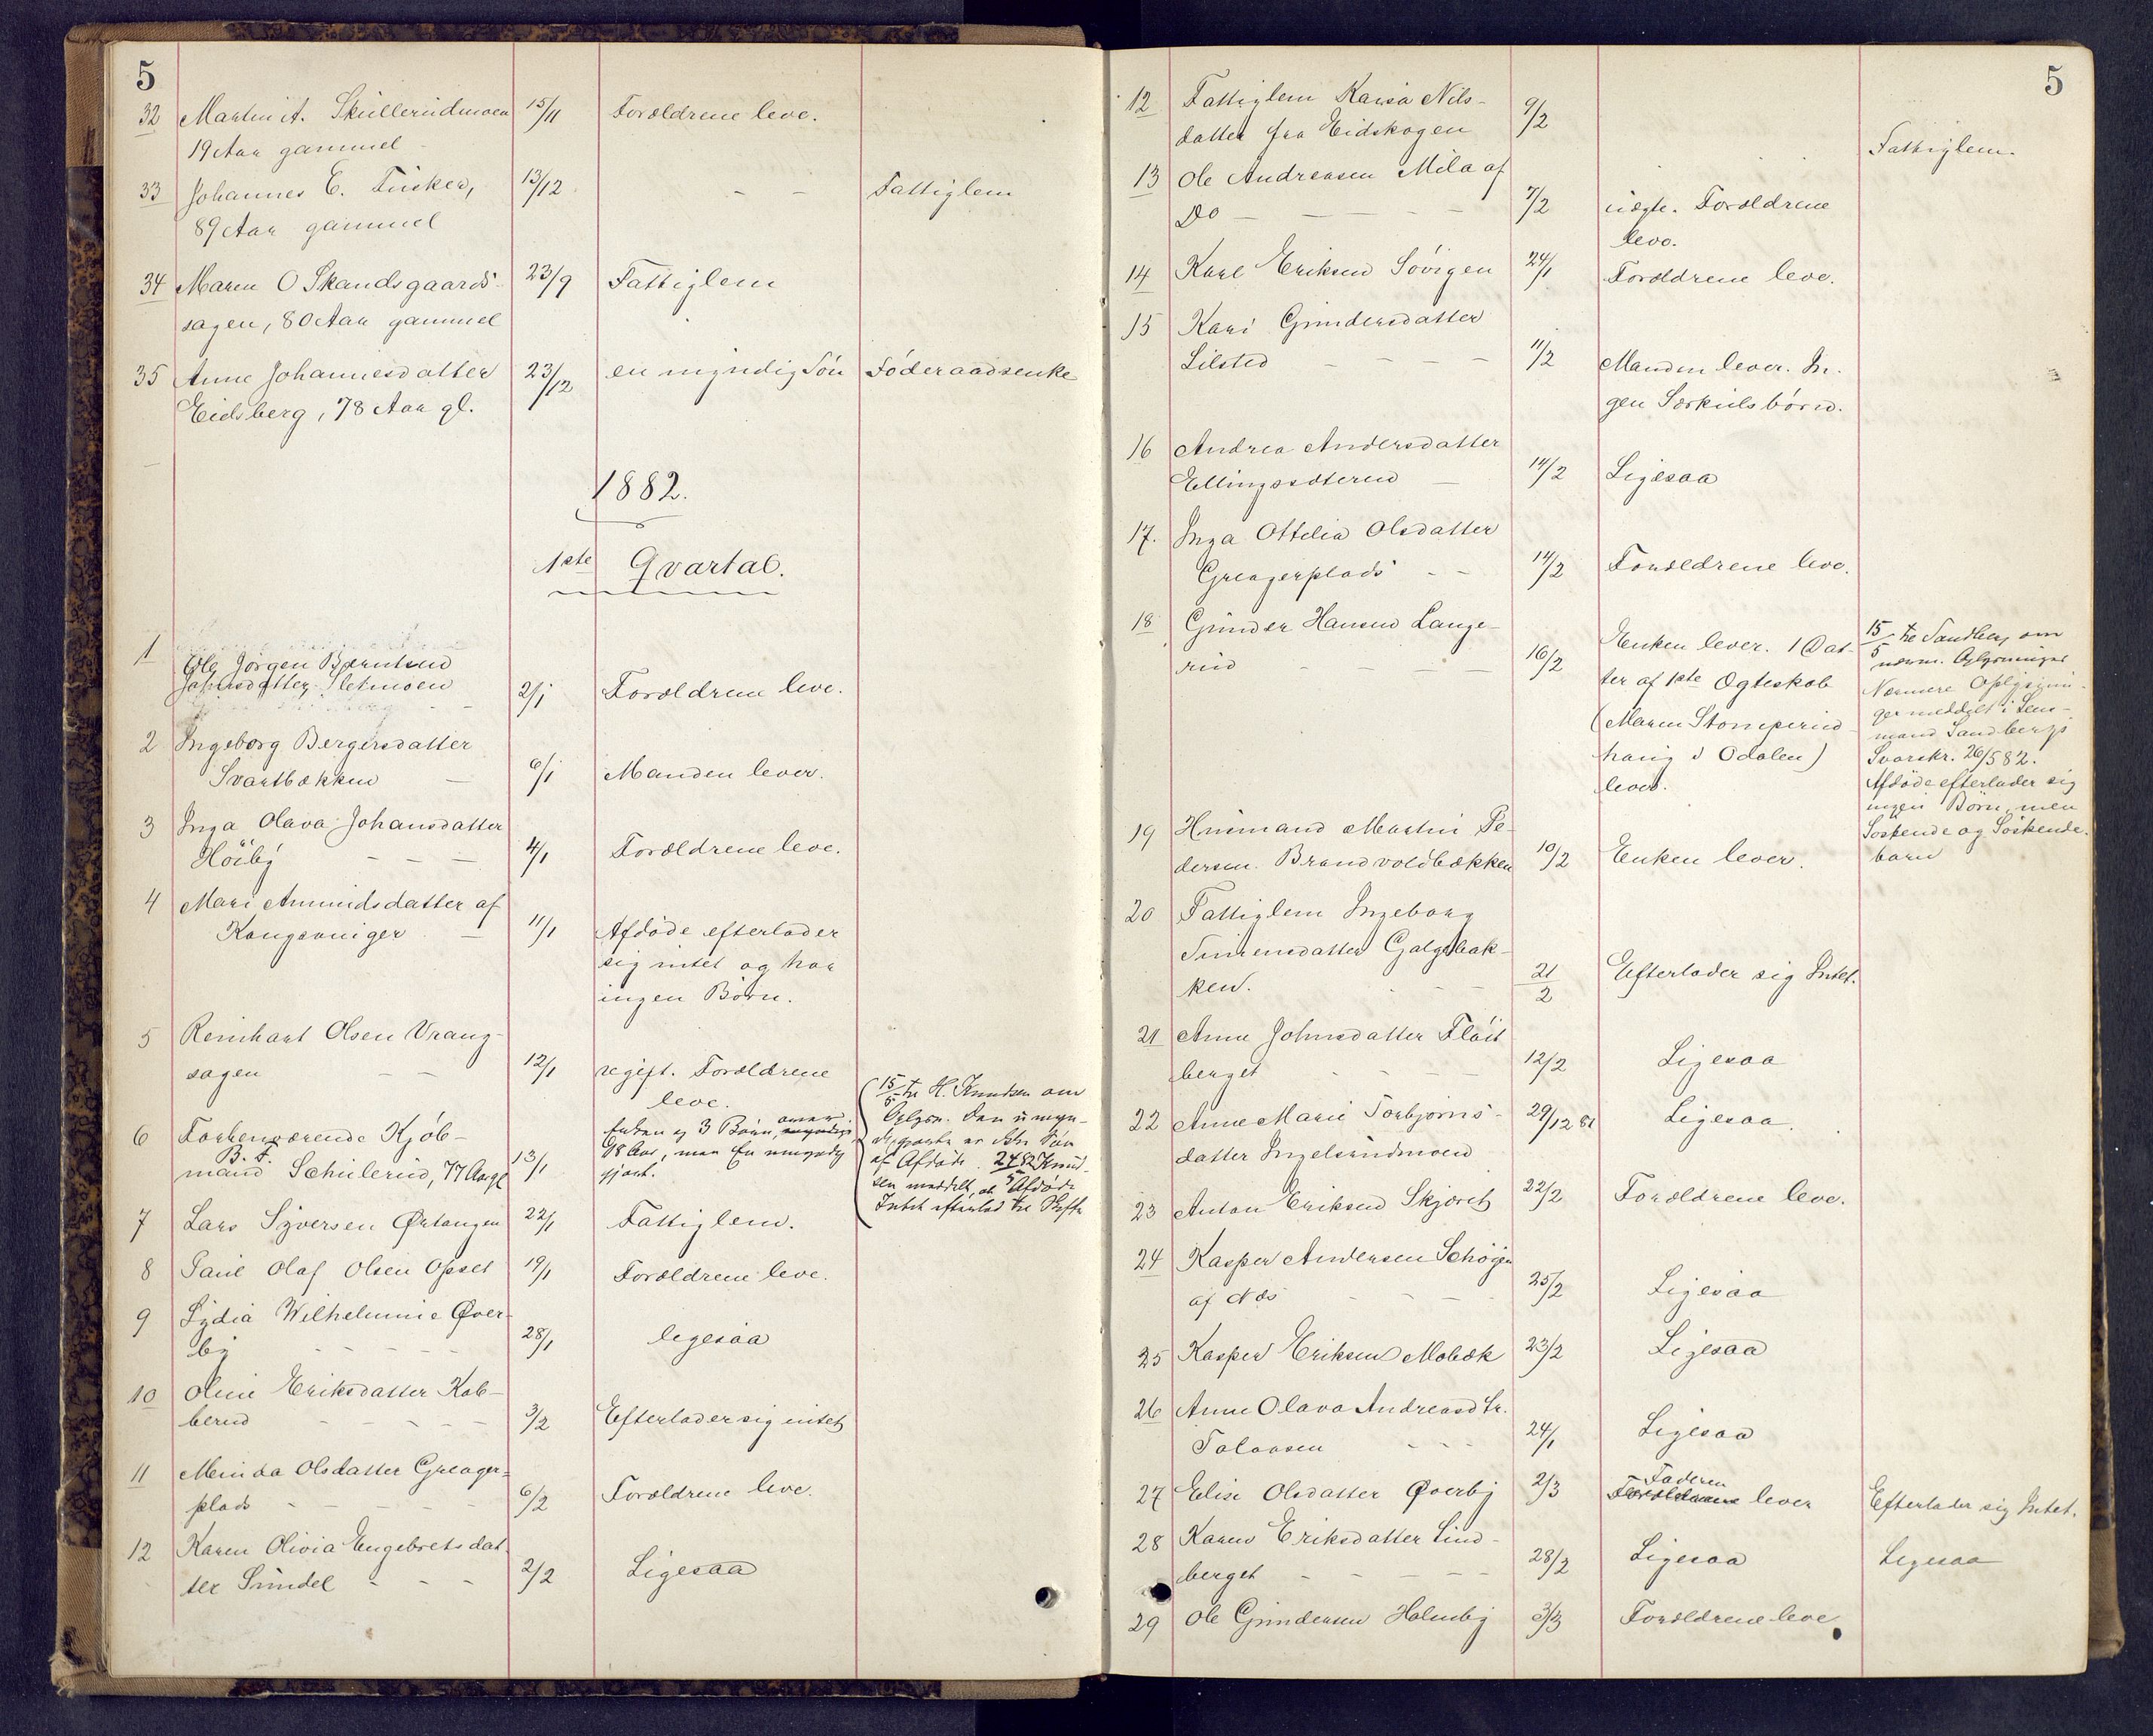 5
32 Martin A. Skullerudmoen 15/11 Forældrene leve.
19 Aar gammel
33 Johannes E. Tusker, 13/12 - - Fattiglem
89 Aar gammel
34 Maren O Skandsgaards- 23/9 Fattiglem
sagen, 80 Aar gammel
35 Anne Johannesdatter 23/12 en myndig Søn Föderaadsenke
Eidsberg, 78 Aar gl.
1882.
1ste Qvartal.
1 Ole Jörgen Berntsen
Sletmoen 2/1 Forældrene leve.
2 Ingeborg Bergersdatter
Svartbækken 6/1 Manden lever.
3 Inga Olava Johansdatter
Höiby - - - 4/1 Forældrene leve.
4 Mari Amundsdatter af
Kongsvinger - 11/1 Afdöde efterlader
sig intet og har
ingen Börn.
5 Reinhart Olsen Vrang-
sagen - - 12/1 ugift. Forældrene
leve.
6 Forhenværende Kjöb-
B. F.
mand Schulerud, 77 Aar gl 13/1 Enken og 3 Börn, over
18 Aar, men En umyndig
gjort.
15/5 til H. Knudsen om
Oplysn. Den umyn-
diggjorte er ikke Søn
af Afdöde. 24/5 82 Knud-
sen meddelt, at Afdöde
Intet efterlod til Skifte
7 Lars Syversen Ørtangen 22/1 Fattiglem.
8 Paul Olaf Olsen Opset 19/1 Forældrene leve.
9 Lydia Wilhelmine Øver-
by - - - - - 28/1 ligesaa
10 Oline Eriksdatter Kob-
berud - - - - - 3/2 Efterlader sig intet
11 Minda Olsdatter Greager-
plads - - - - - 6/2 Forældrene leve.
12 Karen Olivia Engebretsdat-
ter Sundel - - - 2/2 Ligesaa
5
12 Fattiglem Kaisa Nils-
datter fra Eidskogen 9/2 Fattiglem.
13 Ole Andreasen Mila af
Do - - - - - 7/2 uægte. Forældrene
leve.
14 Karl Eriksen Sövigen 24/1 Forældrene leve.
15 Kari Gundersdatter
Lilsted - - - - 11/2 Manden lever. In-
gen Særkulsbörn.
16 Andrea Andersdatter
Ellingssæteren - 14/2 Ligesaa
17. Inga Ottilia Olsdatter
Greagerplads - - 14/2 Forældrene leve.
18 Gunder Hansen Lange-
rud - - - - 16/2 Enken lever. 1 Dat-
ter af 1ste Ægteskab
(Maren Stomperud-
haug i Odalen)
lever.
15/5 til Sandberg om
nærm. Oplysninger
Nærmere Oplysnin-
ger meddelt i Lens-
mand Sandbergs
Svarskr. 26/5 82.
Afdöde efterlader sig
ingen Börn, men
Söskende og Söskende-
barn
19 Hnimand Martin Pe-
dersen. Brandvoldbækken 10/2 Enken lever.
20 Fattiglem Ingeborg
Simensdatter Galgebak-
ken. - - - 21/2 Efterlader sig Intet.
21 Anne Johnsdatter Flöit-
berget - - - - 12/2 Ligesaa
22 Anne Marie Torbjörns-
datter Ingelsrudmoen 29/12 81 Ligesaa.
23 Anton Eriksen Skjæret 22/2 Forældrene leve.
24 Kasper Andersen Schøgen
af Næs - - - 25/2 Ligesaa
25 Kasper Eriksen Mobæk 23/2 Ligesaa
26 Anne Olava Andreasdtr.
Tolaasen - - - 24/1 Ligesaa
27 Elise Olsdatter Øverby 2/3 Faderen
Forældrene lever Efterlader sig Intet.
28 Karen Eriksdatter Lind-
berget - - - - - 28/2 Ligesaa Ligesaa
29 Ole Gundersen Holmby 3/3 Forældrene leve